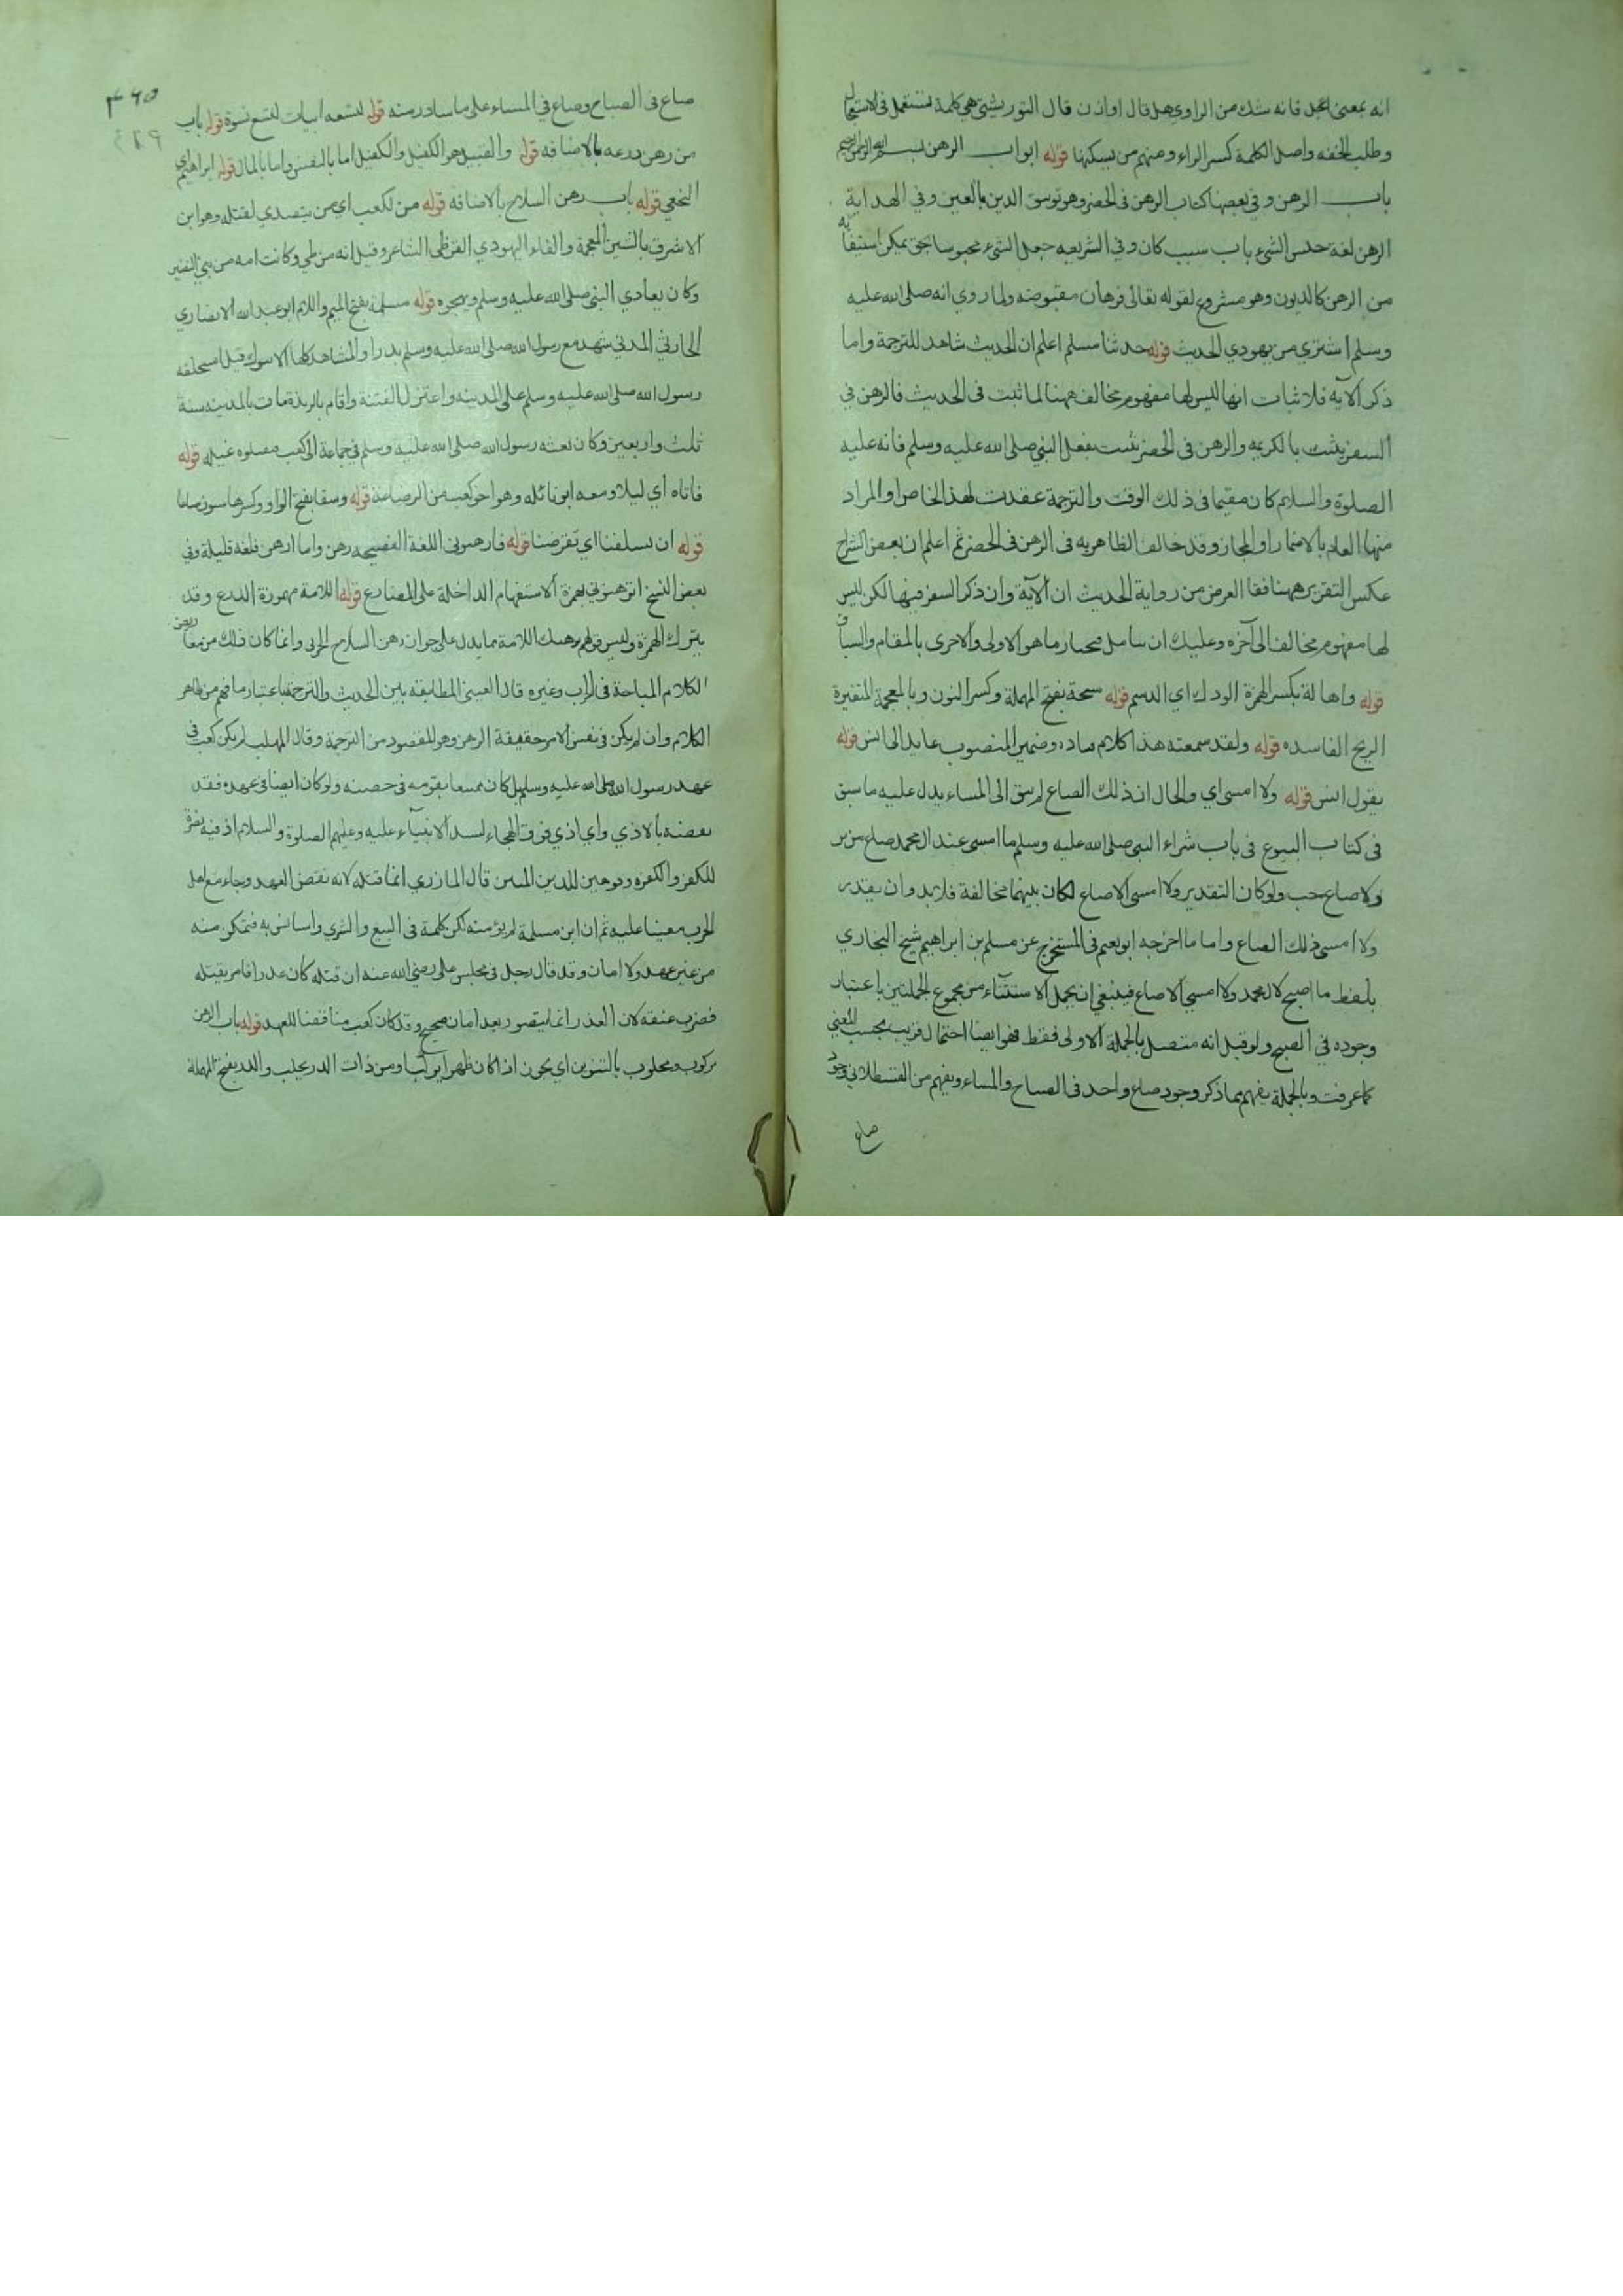 انه بمعنى اعجل فانه شك من الراوي هل قال او ارن قال التوربشتي هي كلمة تستعمل في الاستعجال
وطلب الخفه واصل الكلمة كسر الراء ومنهم من يسكنها قوله ابواب الرهن بسم الله الرحمن الرحيم
باب الرهن وفي بعضها كتاب الرهن في الحضر وهو توسق الدين بالعين وفي الهداية
الرهن لغة حبس الشيء باي سبب كان وفي الشريعه جعل الشيء محبوسا بحق يمكن استيفائه
من الرهن كالديون وهو مشروع لقوله تعالى فرهان مقبوضه ولما روي انه صلى الله عليه
وسلم اشترى من يهودي الحديث قوله حدثنا مسلم اعلم ان الحديث شاهد للترجمة واما
ذكر الآيه فلاثبات انها ليس لها مفهوم مخالف ههنا لما ثبت في الحديث فالرهن في
السفر يثبت بالكريمه والرهن في الحضر تثبت بفعل النبي صلى الله عليه وسلم فانه عليه
الصلوة والسلام كان مقيما في ذلك الوقت والترجمة عقدت لهذا الخاص او المراد
منها العام بالاضمار او المجاز وقد خالف الظاهريه في الرهن في الحضر ثم اعلم ان بعض الشراح
عكس التقرير ههنا فقا الغرض من رواية الحديث ان الآية وان ذكر السفر فيها لكن ليس
لها مفهوم مخالف الى آخره وعليك ان تتامل ما هو الاولى والاحرى بالمقام والسياق
قوله واهالة بكسر الهمزة الودك اي الدسم قوله سنخة بفتح المهملة وكسر النون وبالمعجمة المتغيرة
الريح الفاسده قوله ولقد سمعته هذا كلام قتاده وضمير المنصوب عايد الى انس قوله
يقول انس قوله ولا امسى اي والحال ان ذلك الصاع لم يبق الى المساء يدل عليه ما سبق
في كتاب البيوع في باب شراء النبي صلى الله عليه وسلم ما امسى عند ال محمد صاع من بر
ولا صاع حب ولو كان التقدير ولا امسى الا صاع لكان بينهما مخالفة فلابد وان يقدر
ولا امسى ذلك الصاع واما ما اخرجه ابو نعيم في المستخرج عن مسلم بن ابراهيم شيخ البخاري
بلفظ ما اصبح لال محمد ولا امسى الا صاع فينبغي ان يحمل الاستثناء من مجموع الجملتين باعتبار
وجوده في الصبح ولو قيل انه متصل بالجملة الاولى فقط فهو ايضا احتمال قريب بحسب المعنى
كما عرفت وبالجملة يفهم مما ذكر وجود صاع واحد في الصباح والمساء ويفهم من القسطلاني وجود
صاع
٣٦٥
صاع في الصباح وصاع في المساء على ما ساذر منه قوله لتسعه ابيات لتسع نسوة قوله باب
من رهن درعه بالاضافه قوله والقبيل هو الكفيل والكفيل اما بالنفس واما بالمال قوله ابراهيم اي
النخعي قوله باب رهن السلاح بالاضافه قوله من لكعب اي من يتصدي لقتله وهو ابن
الاشرف بالشين المعجمة والفاء اليهودي القرظي الشاعر وقيل انه من طي وكانت امه من بني النضير
وكان يعادي النبي صلى الله عليه وسلم ويهجوه قوله مسلمة بفتح الميم واللام ابو عبد الله الانصاري
الحارثي المدني شهد مع رسول الله صلى الله عليه وسلم بدرا والمشاهد كلها الا تبوك قيل استخلفه
رسول الله صلى الله عليه وسلم على المدينه واعتزل الفتنة واقام بالربذة مات بالمدينه سنة
ثلث واربعين وكان بعثه رسول الله صلى الله عليه وسلم في جماعة الى كعب فقتلوه غيله قوله
فاتاه اي ليلا ومعه ابو نائله وهو اخو كعب من الرضاعة قوله وسقا بفتح الواو وكسرها ستون صاعا
قوله ان تسلفنا اي تقرضنا قوله فارهنوني اللغة الفصيحه رهن واما ارهن فلغه قليلة وفي
بعض النسخ اترهنوني بهمزة الاستفهام الداخلة على المضارع قوله اللامة مهموزة الدرع وقد
يترك الهمزة وليس قولهم نرهنك اللامة مما يدل على جواز رهن السلاح الحربي وانما كان ذلك من معاريض
الكلام المباحة في الحرب وغيره قال العيني المطابقه بين الحديث والترجمة باعتبار ما فهم من ظاهر
الكلام وان لم يكن في نفس الامر حقيقة الرهن وهو المقصود من الترجمة وقال المهلب لم يكن كعب في
عهد رسول الله صلى الله عليه وسلم بل كان ممتنعا بقومه في حصنه ولو كان ايضا في عهده فقد
نقضه بالاذي واي اذي فوق الهجاء لسيد الانبياء عليه وعليهم الصلوة والسلام اذ فيه نصرة
للكفر والكفره وتوهين للدين المتين قال المازري انما قتله لانه نقض العهد وجاء مع اهل
الحرب معينا عليه ثم ان ابن مسلمة لم يؤمنه لكن كلمة في البيع والشري واستانس به فتمكن منه
من غير عهد ولا امان وقد قال رجل في مجلس علي رضي الله عنه ان قتله كان غدرا فامر بقتله
فضرب عنقه لان الغدر انما يتصور بعد امان صحيح وقد كان كعب مناقضا للعهد قوله باب الرهن
مركوب ومحلوب بالتنوين اي يجوز اذا كان ظهرا يركب او من ذات الدر يحلب والدر بفتح المهملة